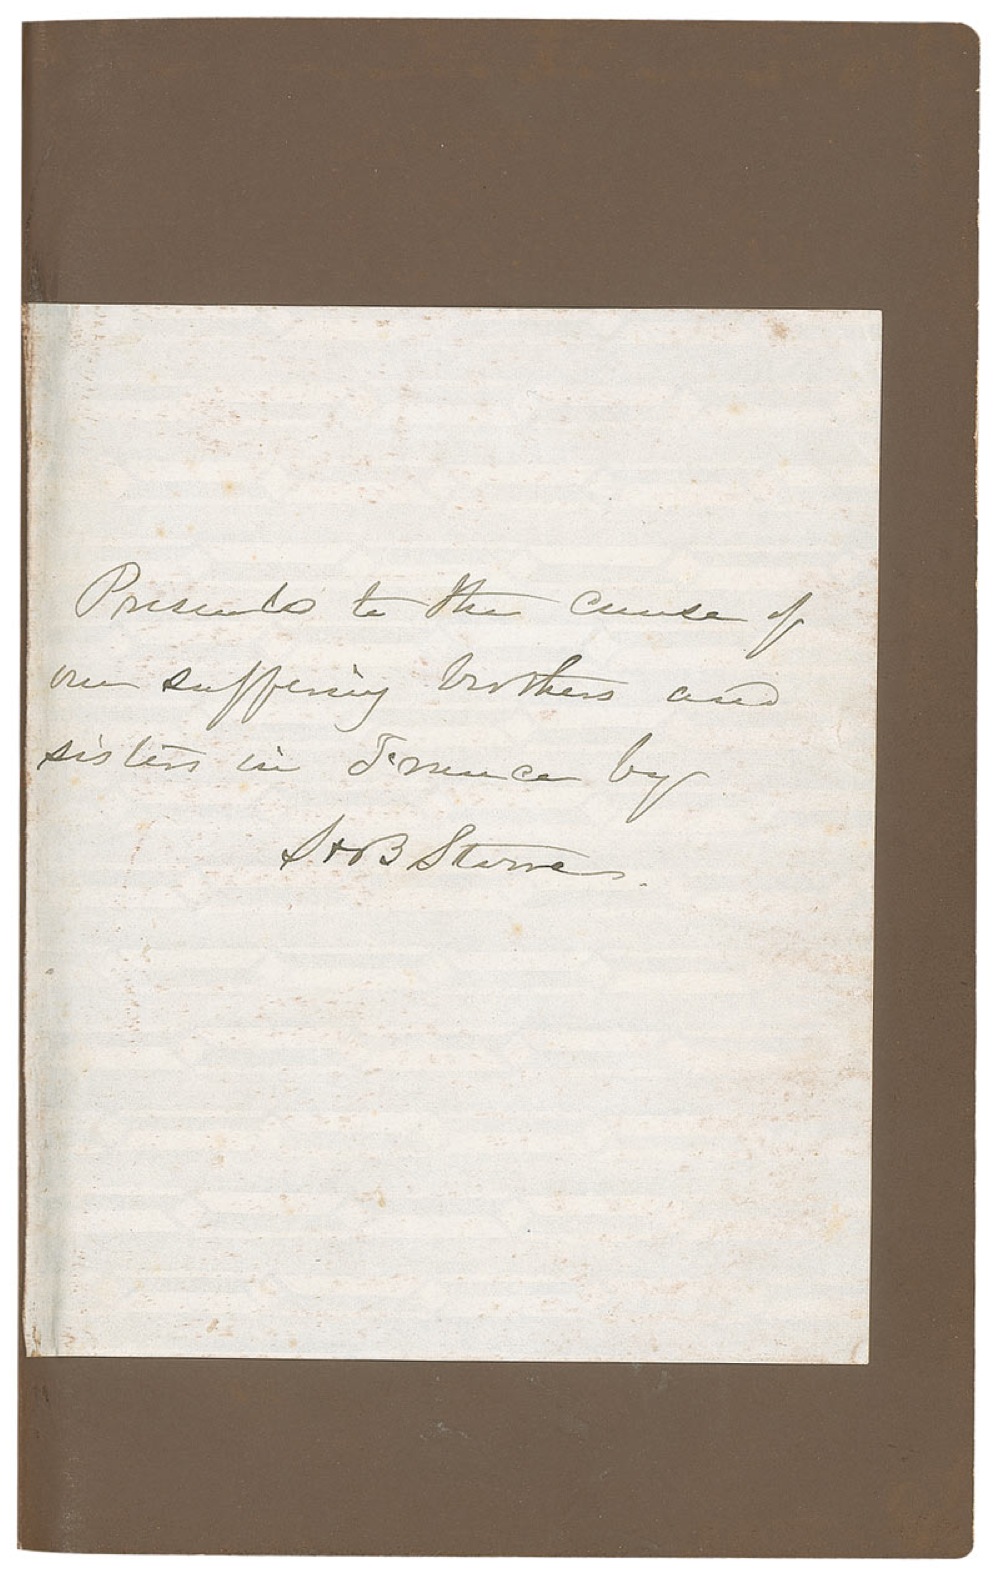 Presents to the cause of
our suffering brothers and
sisters in France by
HB Stowe